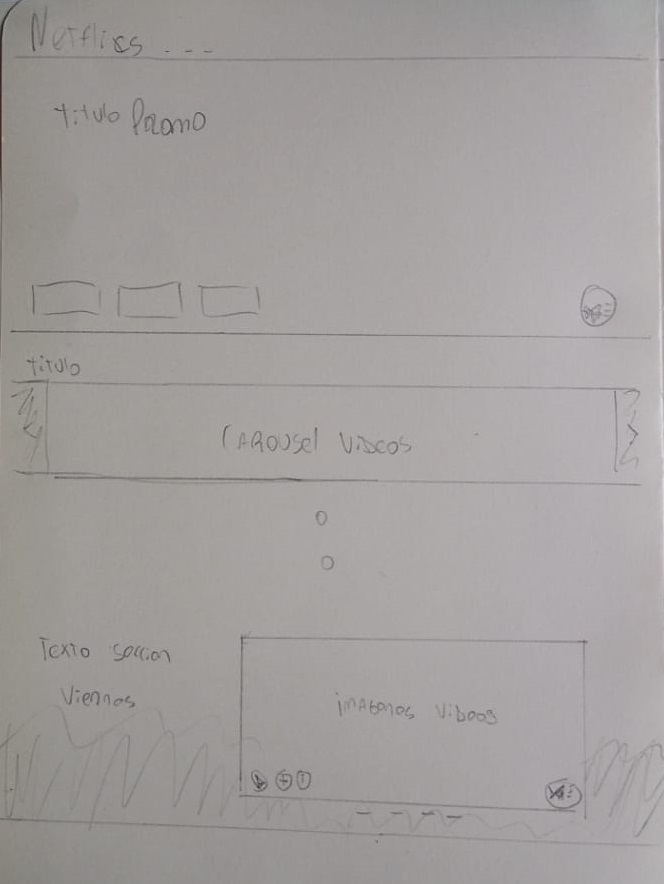 Netflics ...
titulo Promo
titulo
CAROUSEL VIDEOS
Texto seccion
Viernes
imagenes Videos